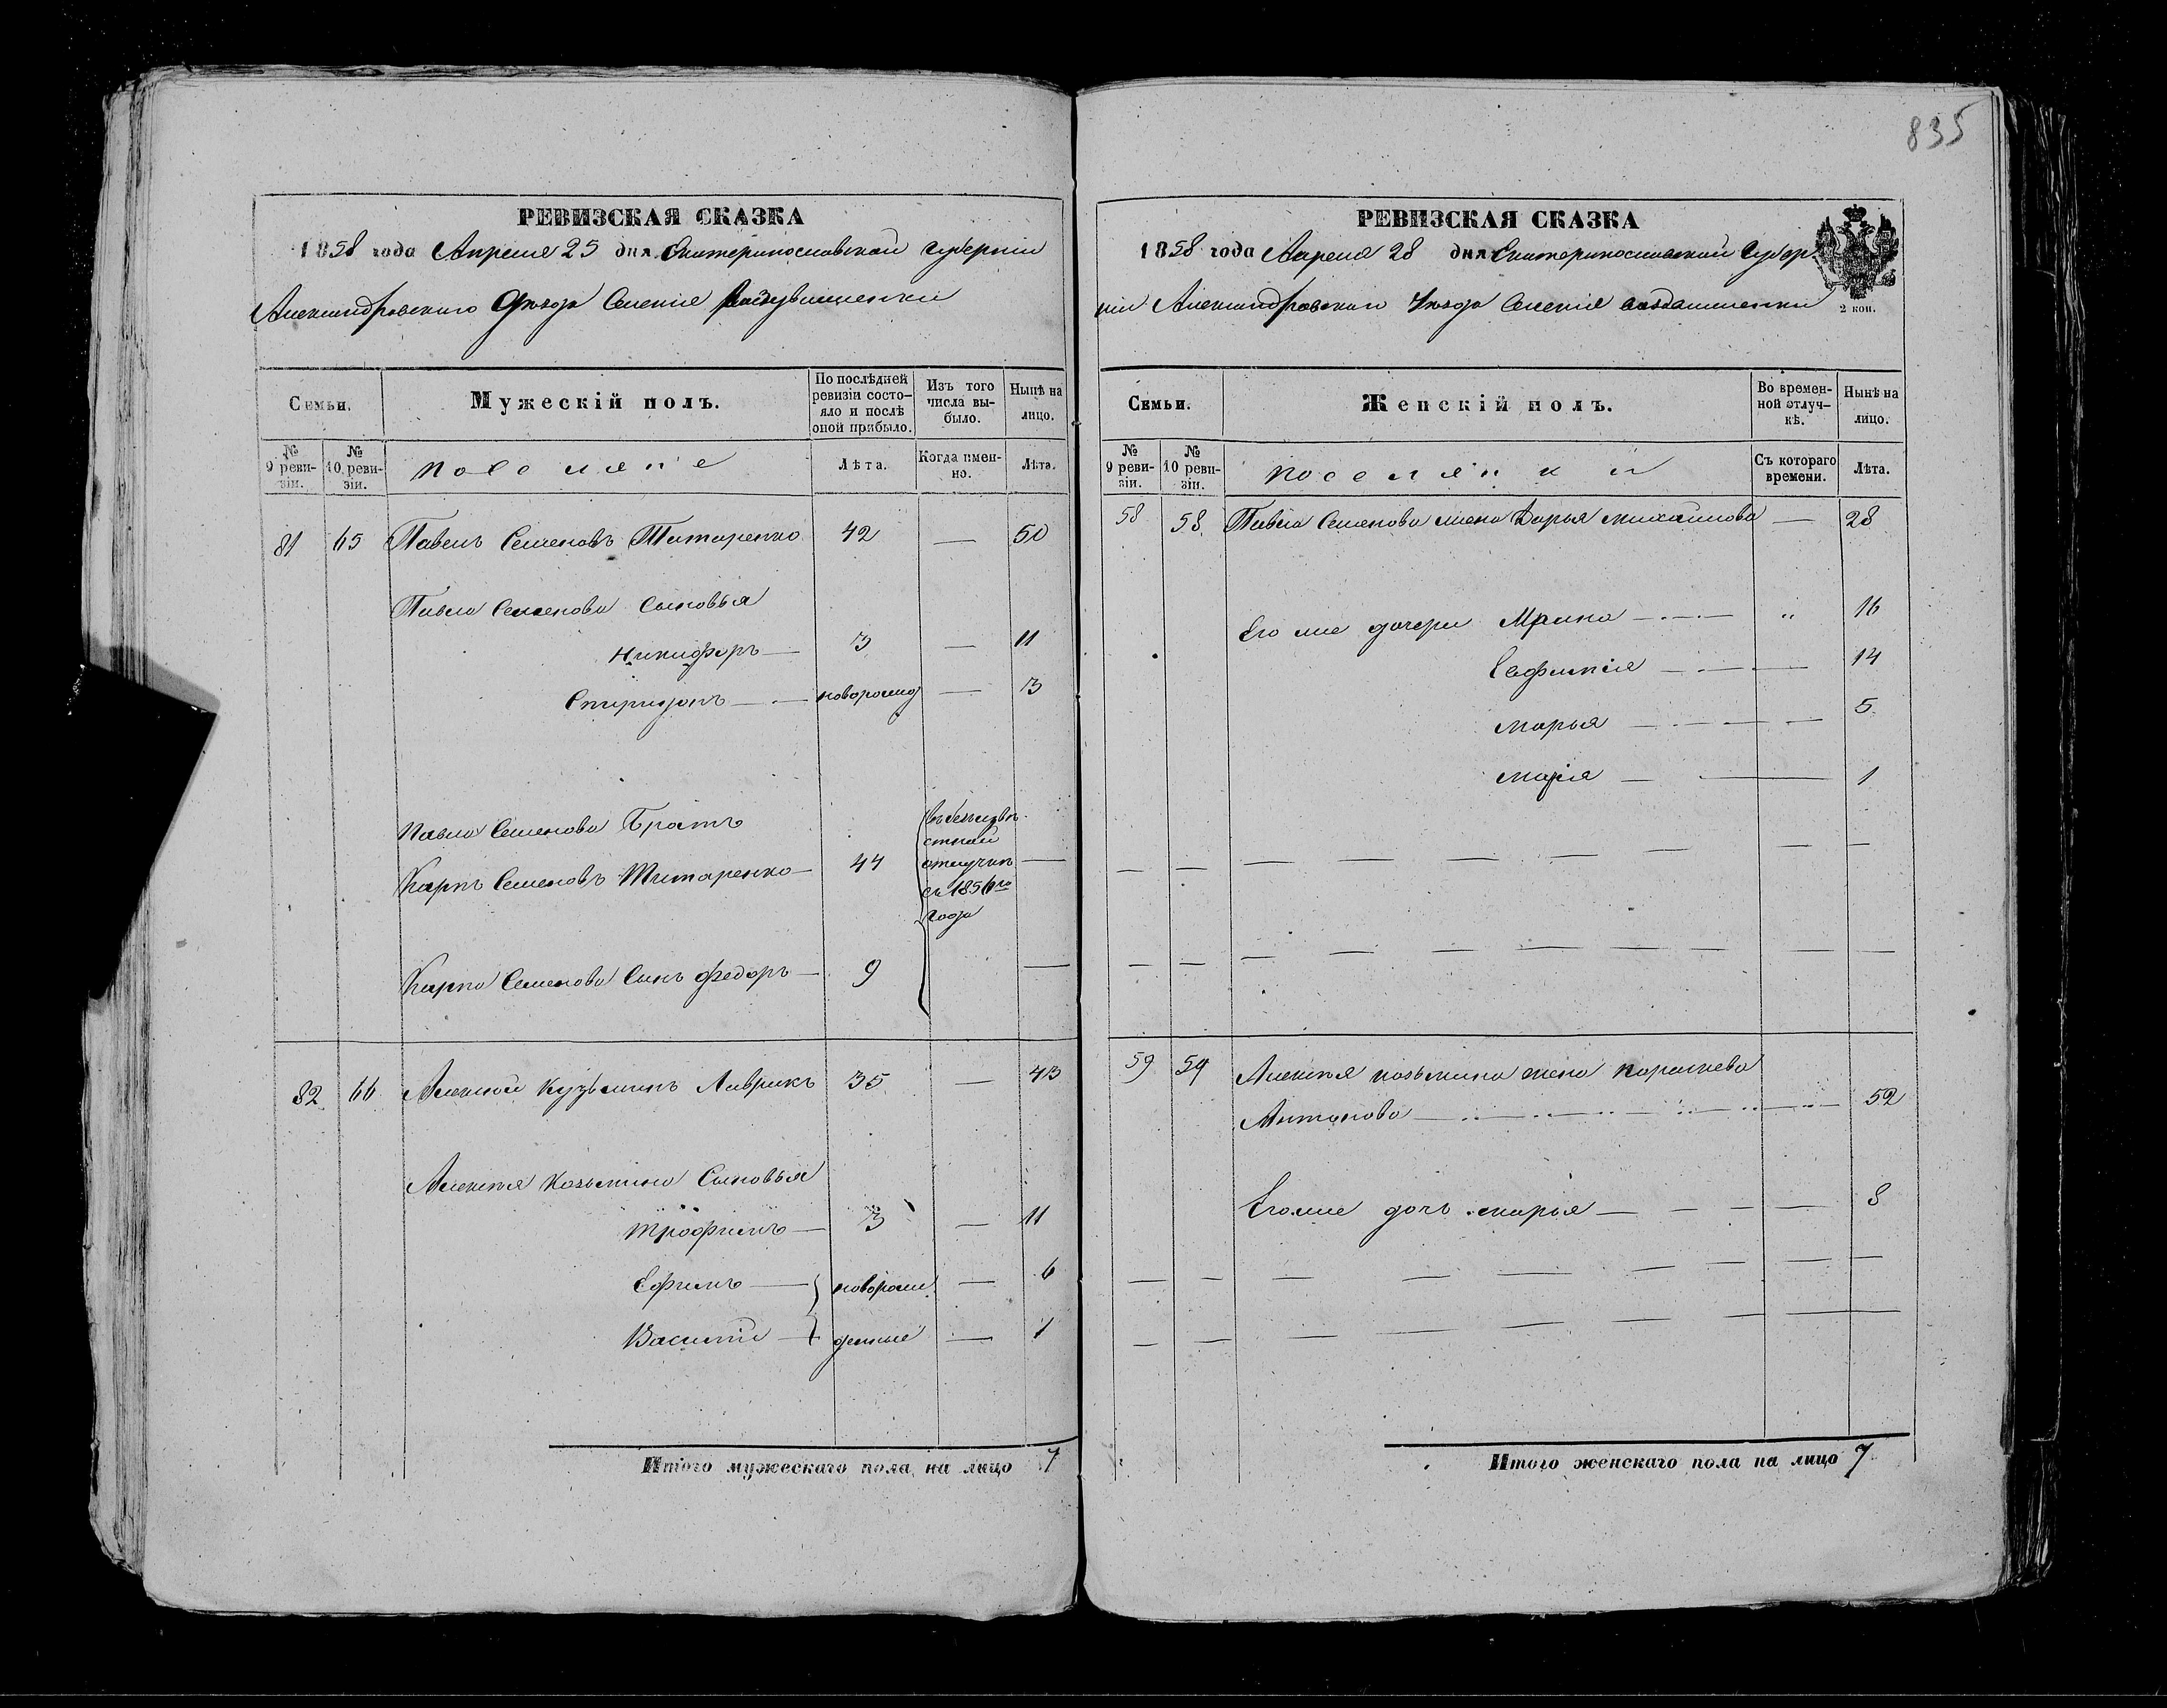 835
РЕВИЗСКАЯ СКАЗКА
1858 года Апреля 25 дня Екатеринославской губернии
Александровского Уезда Селения
Семьи.
Мужескій полъ.
По послѣдней ревизіи состояло и послѣ оной прибыло.
Изъ того числа выбыло.
Нынѣ на лицо.
№ 9 ревизіи.
№ 10 ревизіи.
поселяне
Лѣта.
Когда именно.
Лѣта.
81 65 Павелъ Семеновъ Титаренко 42 — 50
Павла Семенова Сыновья
Никифоръ — 3 — 11
Спиридонъ — новорожд — 3
Павла Семенова Братъ
Карпъ Семеновъ Титаренко — 44 въ безызвѣстной отлучкѣ съ 1856го года —
Карпа Семенова Сынъ Федоръ — 9 —
82 66 Алексѣй Кузьминъ Лаврикъ 35 — 43
Алексѣя Козьмина Сыновья
Трофимъ — 3 — 11
Ефимъ — новорож — 6
Василій — денные — 1
Итого мужескаго пола на лицо 7
РЕВИЗСКАЯ СКАЗКА
2 коп.
1858 года Апреля 28 дня Екатеринославской Губер
ніи Александровскаго Уезда Селенія
Семьи.
Женскій полъ.
Во временной отлучкѣ.
Нынѣ на лицо.
№ 9 ревизіи.
№ 10 ревизіи.
поселянки
Съ котораго времени.
Лѣта.
58 58 Павла Семенова жена Дарья Михайлова — 28
Его же дочери Ирина — 16
Евфимія — 14
Марья — 5
Марія — 1
59 59 Алексѣя Козьмина жена
Антонова — 52
Его же дочь Марья — 8
Итого женскаго пола на лицо 7